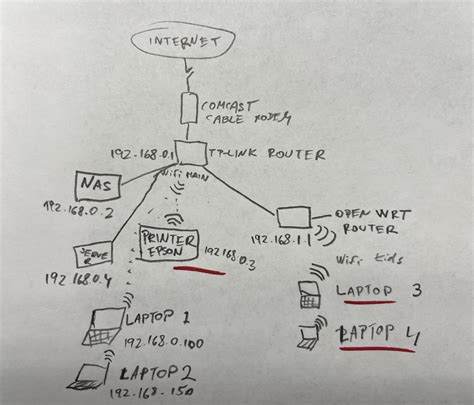 INTERNET
COMCAST
CABLE MODEM
192.168.0.1
TP-LINK ROUTER
WiFi MAIN
NAS
192.168.0.2
OPEN WRT
ROUTER
192.168.1.1
PRINTER
EPSON
192.168.0.3
SERVER
192.168.0.4
WiFi kids
LAPTOP 3
LAPTOP 1
192.168.0.100
LAPTOP 4
LAPTOP 2
192-168-150